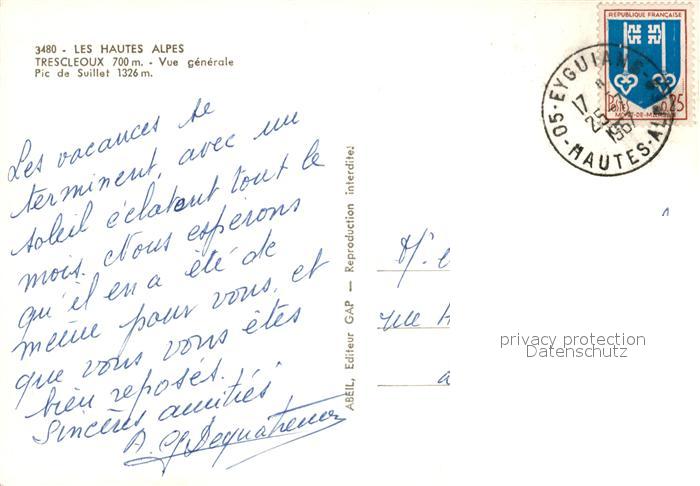 3480 - LES HAUTES ALPES
TRESCLEOUX 700 m. - Vue générale
Pic de Suillet 1326 m.
Les vacances se
terminent, avec un
soleil éclatant tout le
mois. Nous espérons
qu'il en a été de
même pour vous, et
que vous vous êtes
bien reposés.
Sincères amitiés
ABEIL, Editeur GAP — Reproduction interdite.
REPUBLIQUE FRANÇAISE
0,25
MONT-DE-MARSAN
05 - EYGUIANS
17
1967
HAUTES-ALPES
privacy protection
Datenschutz